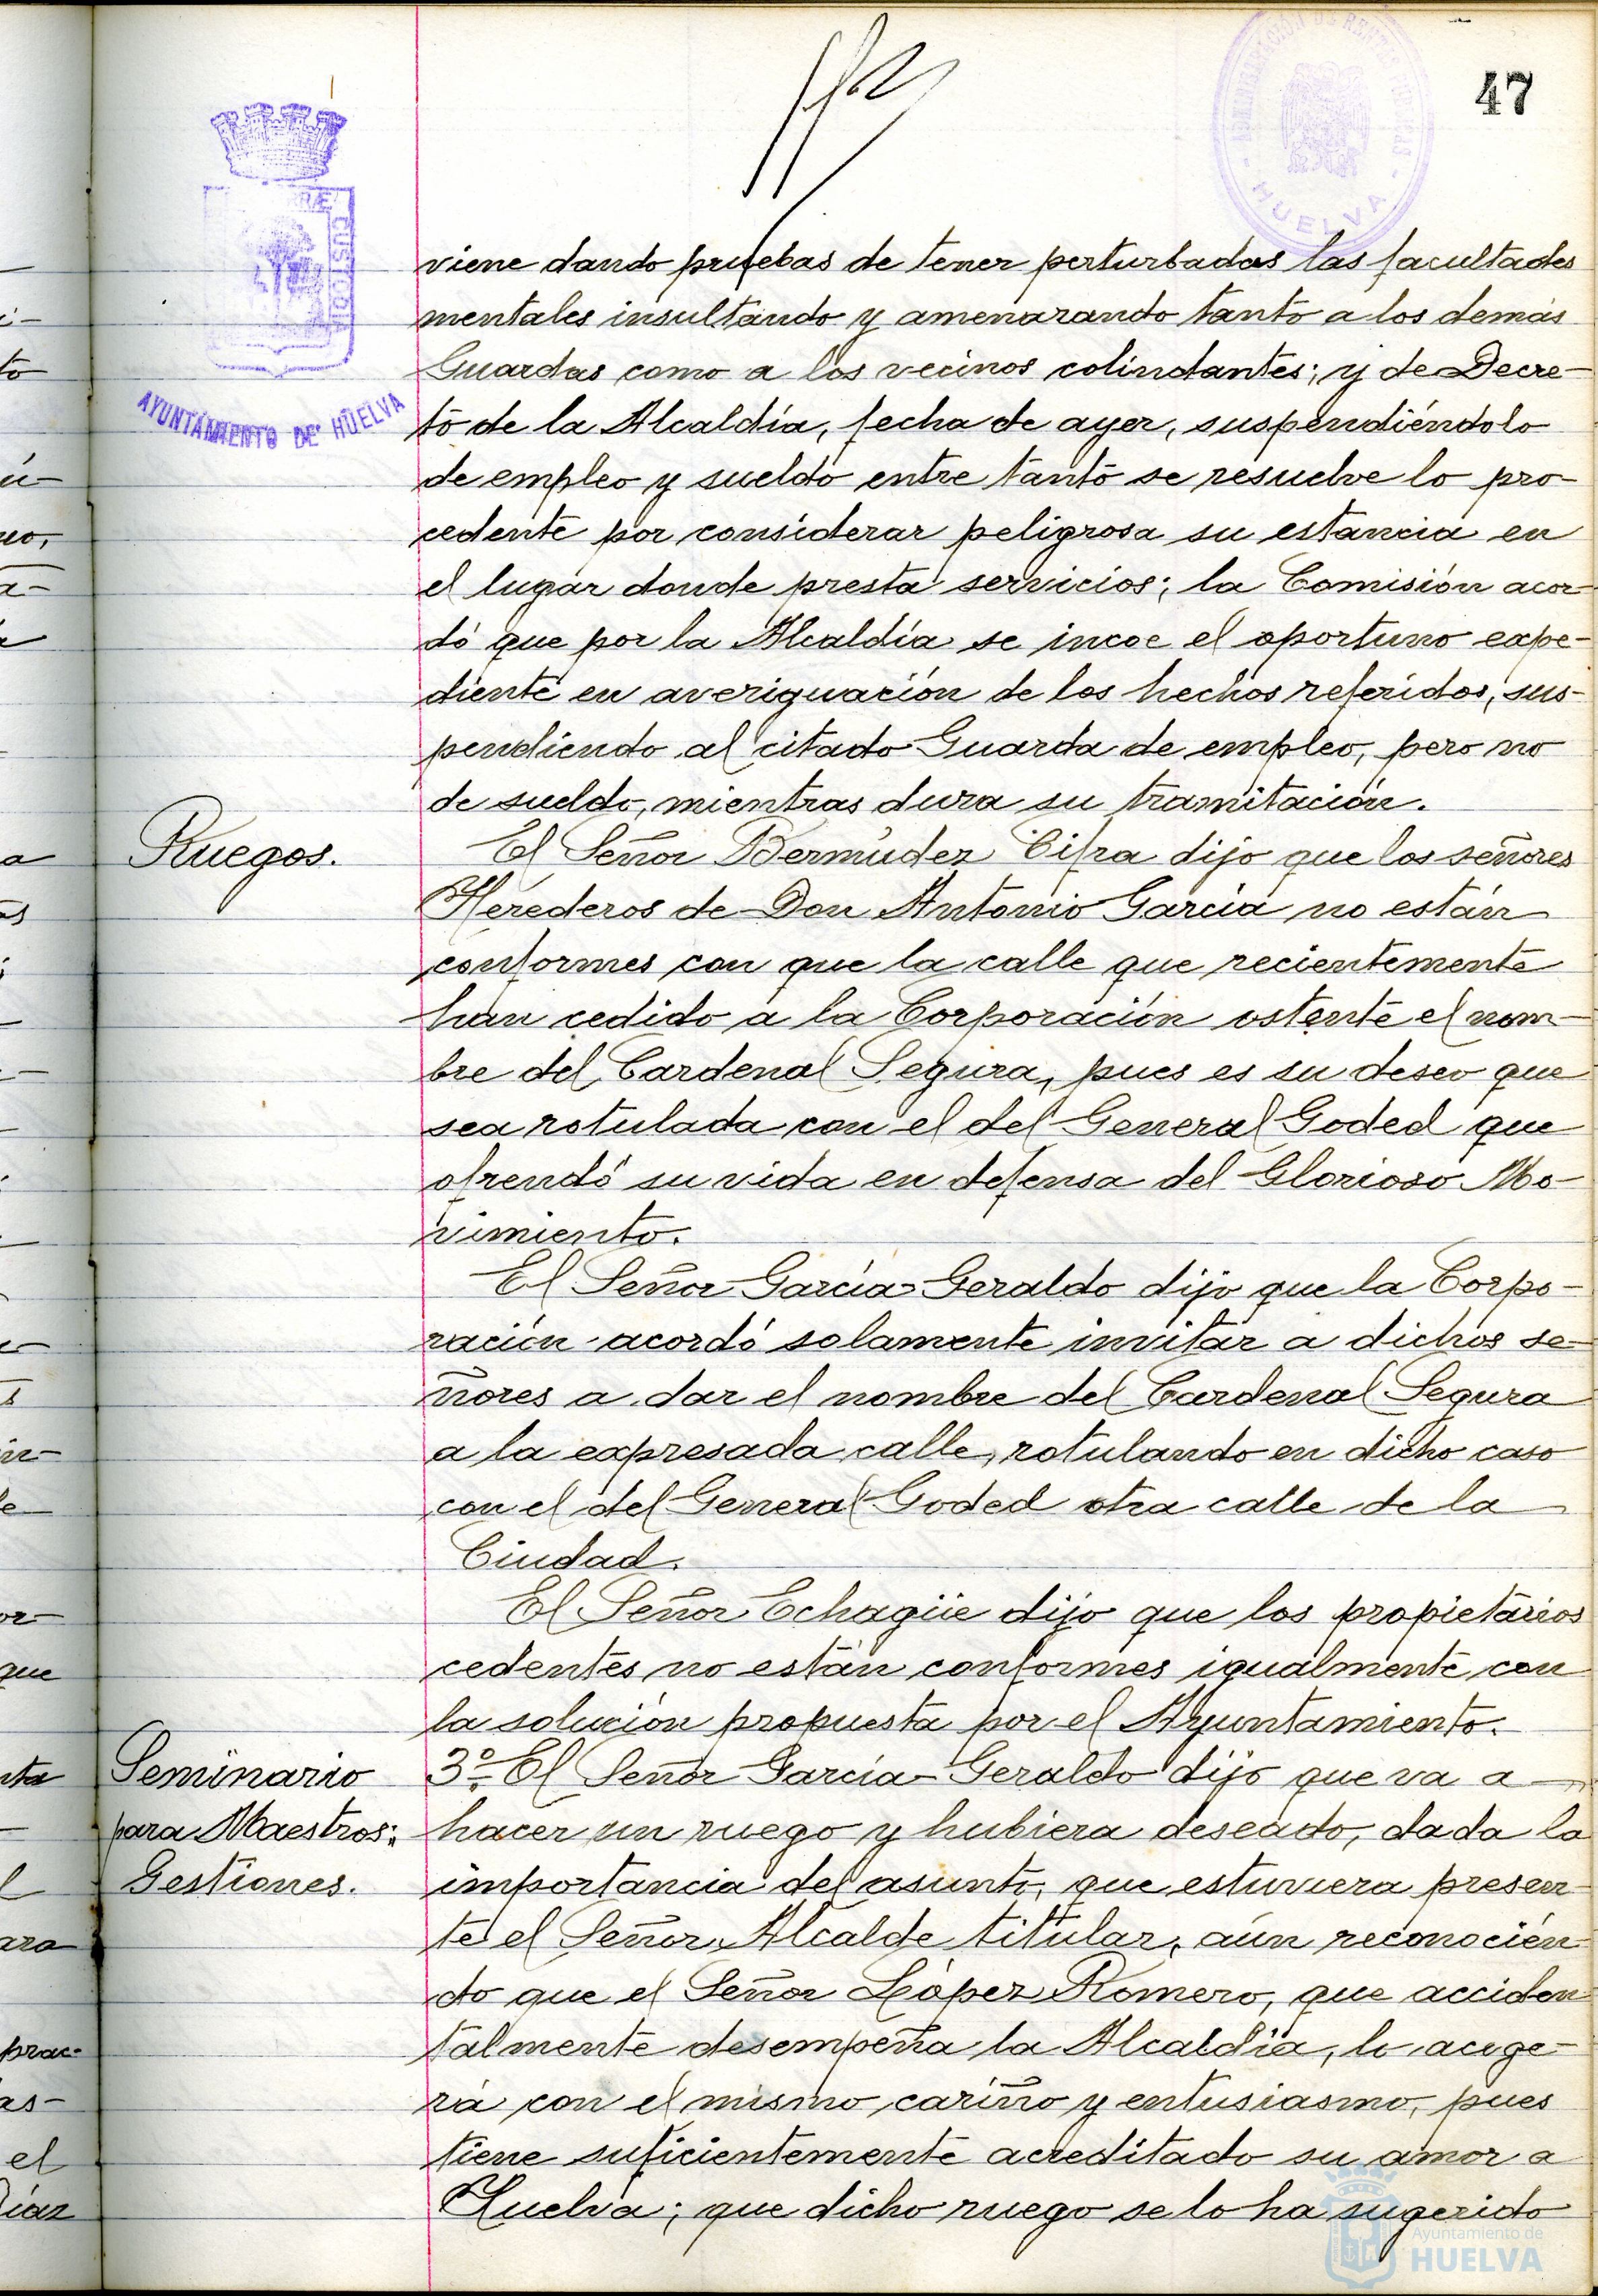 47
ADMINISTRACIÓN DE RENTAS PÚBLICAS
- HUELVA -
CUSTODIA
AYUNTAMIENTO DE HUELVA
viene dando pruebas de tener perturbadas las facultades
mentales insultando y amenazando tanto a los demás
Guardas como a los vecinos colindantes; y de Decre-
to de la Alcaldía, fecha de ayer, suspendiéndolo
de empleo y sueldo entre tanto se resuelve lo pro-
cedente por considerar peligrosa su estancia en
el lugar donde presta servicios; la Comisión acor-
dó que por la Alcaldía se incoe el oportuno expe-
diente en averiguación de los hechos referidos, sus-
pendiendo al citado Guarda de empleo, pero no
de sueldo, mientras dura su tramitación.
Ruegos.
El Señor Bermúdez Cifra dijo que los señores
Herederos de Don Antonio García no están
conformes con que la calle que recientemente
han cedido a la Corporación ostente el nom-
bre del Cardenal Segura, pues es su deseo que
sea rotulada con el del General Goded que
ofrendó su vida en defensa del Glorioso Mo-
vimiento.
El Señor García-Geraldo dijo que la Corpo-
ración acordó solamente invitar a dichos se-
ñores a dar el nombre del Cardenal Segura
a la expresada calle, rotulando en dicho caso
con el del General Goded otra calle de la
Ciudad.
El Señor Echagüe dijo que los propietarios
cedentes no están conformes igualmente con
la solución propuesta por el Ayuntamiento.
Seminario
para Maestros:
Gestiones.
3º- El Señor García-Geraldo dijo que va a
hacer un ruego y hubiera deseado, dada la
importancia del asunto, que estuviera presen-
te el Señor Alcalde titular, aún reconocién-
do que el Señor López Romero, que acciden-
talmente desempeña la Alcaldía, lo acoge-
rá con el mismo cariño y entusiasmo, pues
tiene suficientemente acreditado su amor a
Huelva; que dicho ruego se lo ha sugerido
Ayuntamiento de
HUELVA